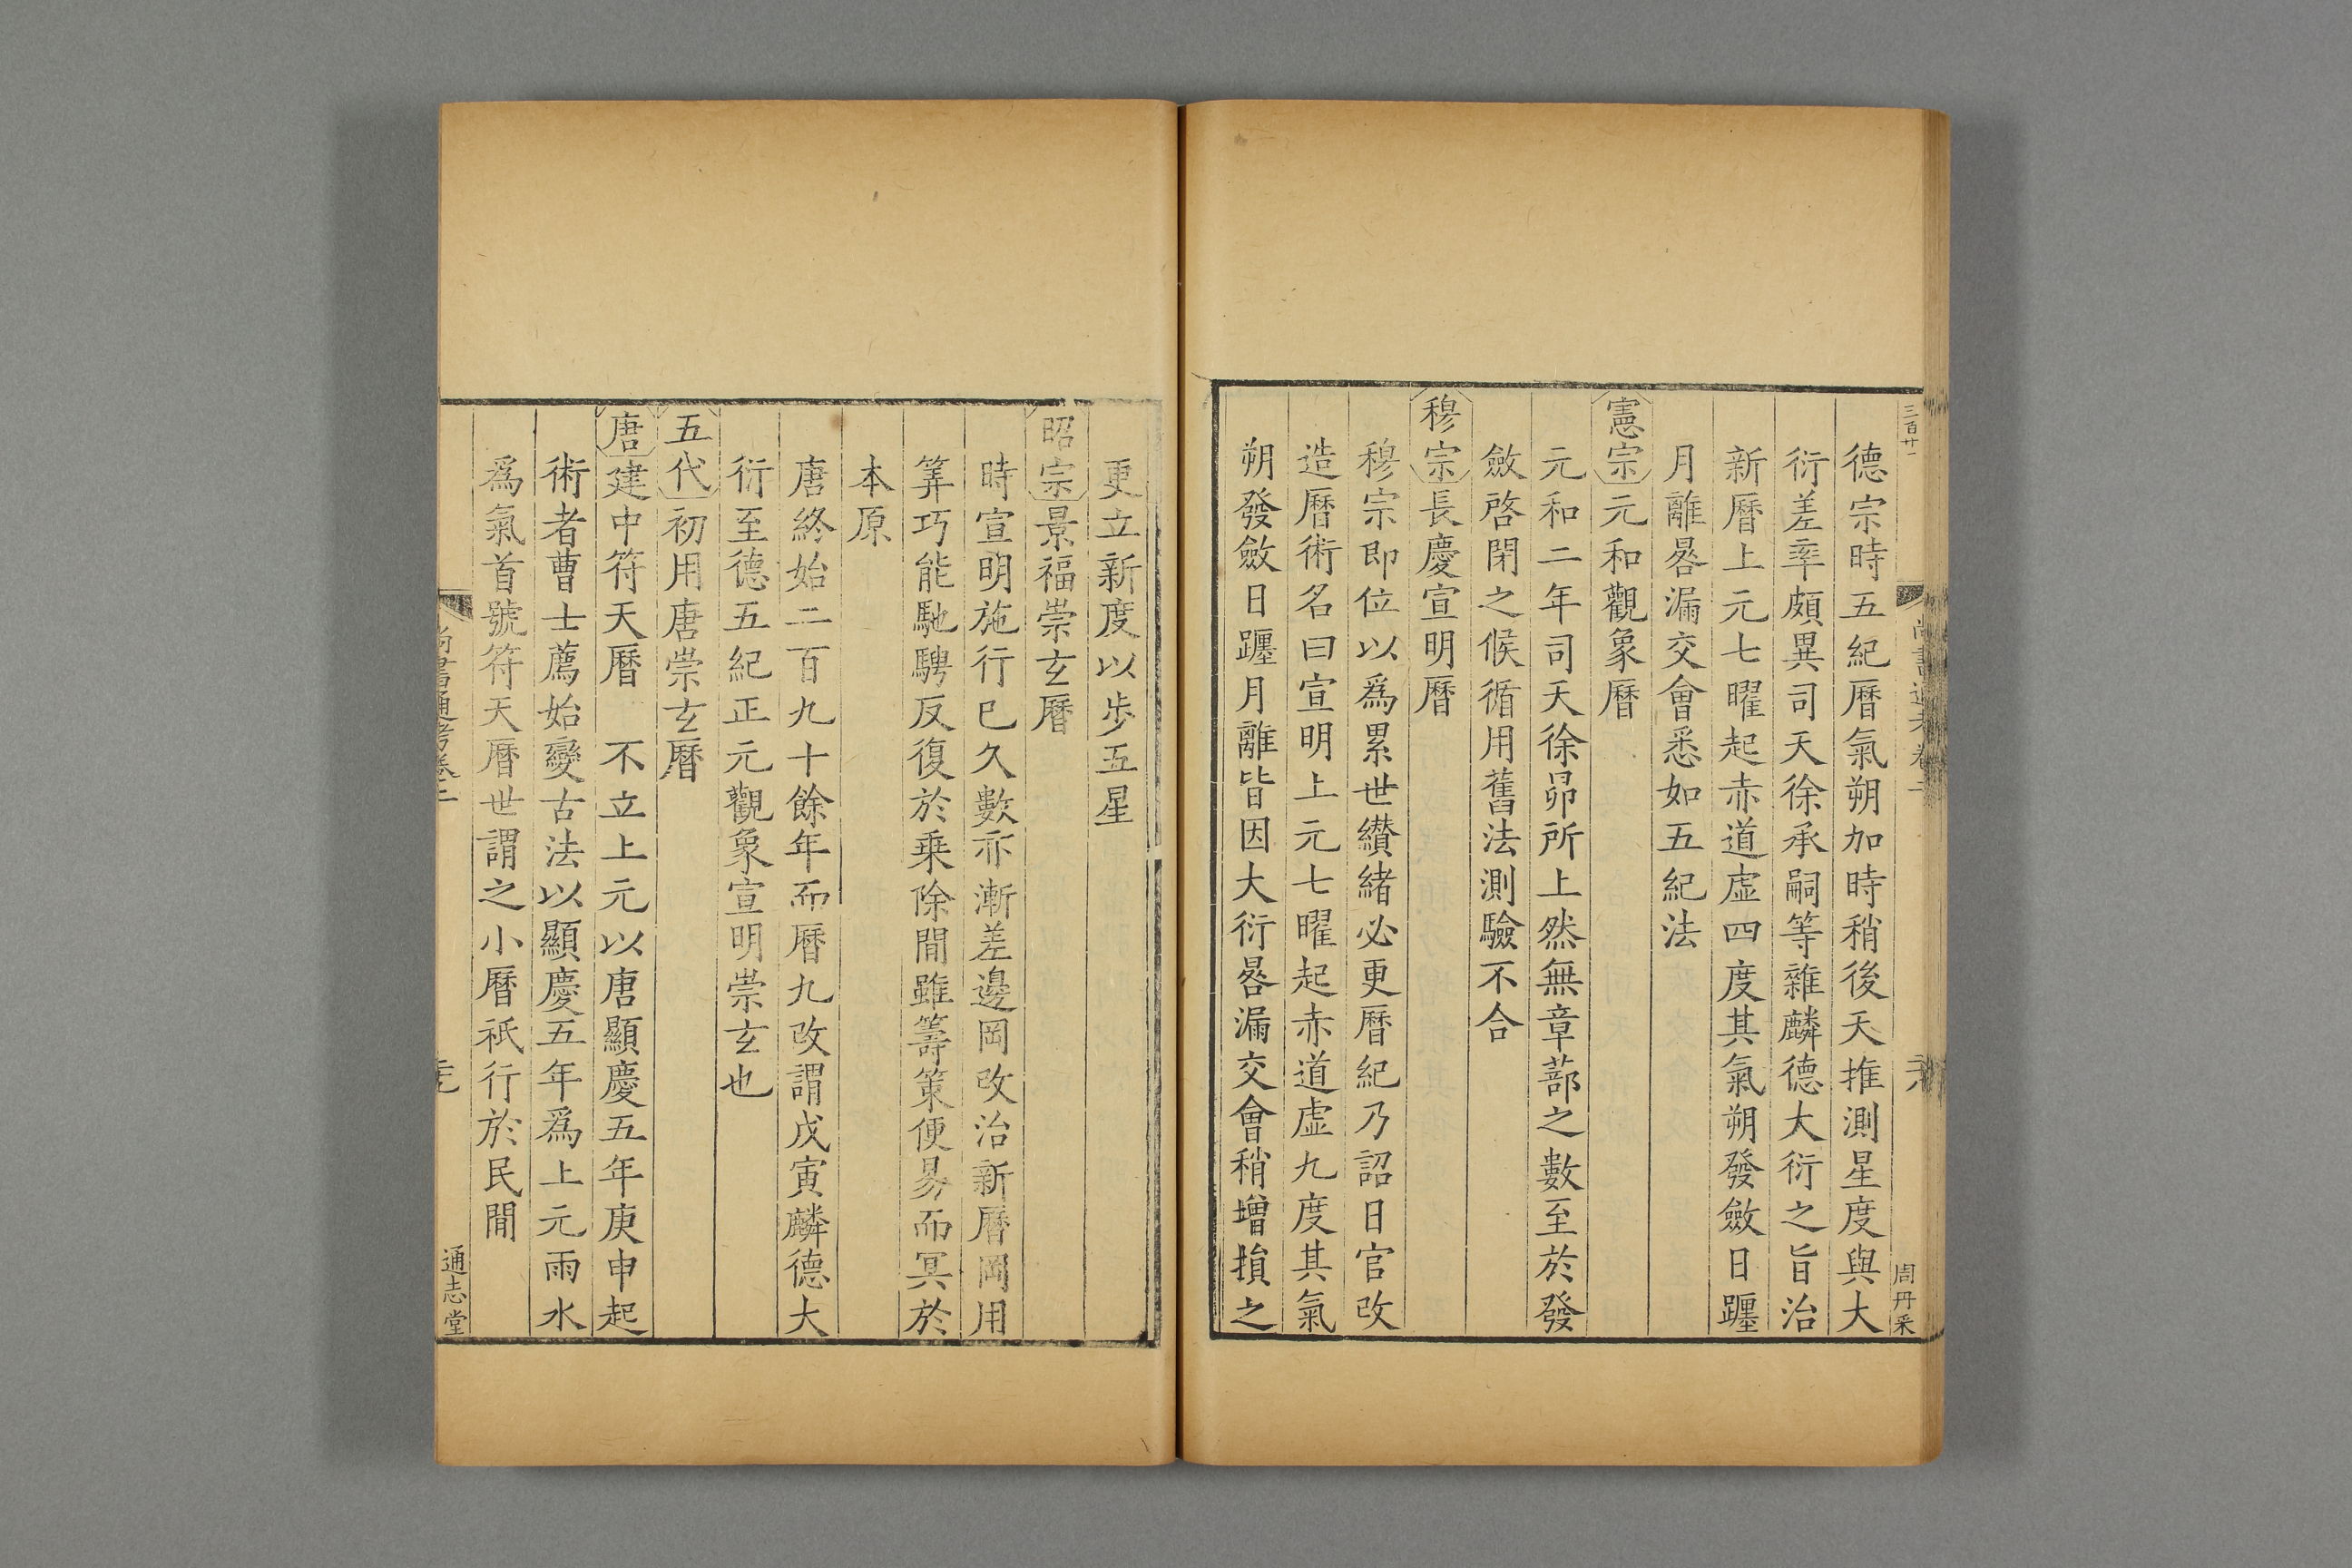 三百廿一
尚書通考卷二
六
周丹采
德宗時五紀曆氣朔加時稍後天推測星度與大
衍差率頗異司天徐承嗣等雜麟德大衍之旨治
新曆上元七曜起赤道虛四度其氣朔發斂日躔
月離晷漏交會悉如五紀法
憲宗元和觀象曆
元和二年司天徐昴所上然無章蔀之數至於發
斂啓閉之候循用舊法測驗不合
穆宗長慶宣明曆
穆宗即位以爲累世纉緒必更曆紀乃詔日官改
造曆術名曰宣明上元七曜起赤道虛九度其氣
朔發斂日躔月離皆因大衍晷漏交會稍增損之
更立新度以步五星
昭宗景福崇玄曆
時宣明施行已久數亦漸差邊岡改治新曆岡用
筭巧能馳騁反復於乗除間雖籌策便易而冥於
本原
唐終始二百九十餘年而曆九改謂戊寅麟德大
衍至德五紀正元觀象宣明崇玄也
五代初用唐崇玄曆
唐建中符天曆　不立上元以唐顯慶五年庚申起
術者曹士蔿始變古法以顯慶五年爲上元雨水
爲氣首號符天曆世謂之小曆祇行於民間
尚書通考卷二
通志堂